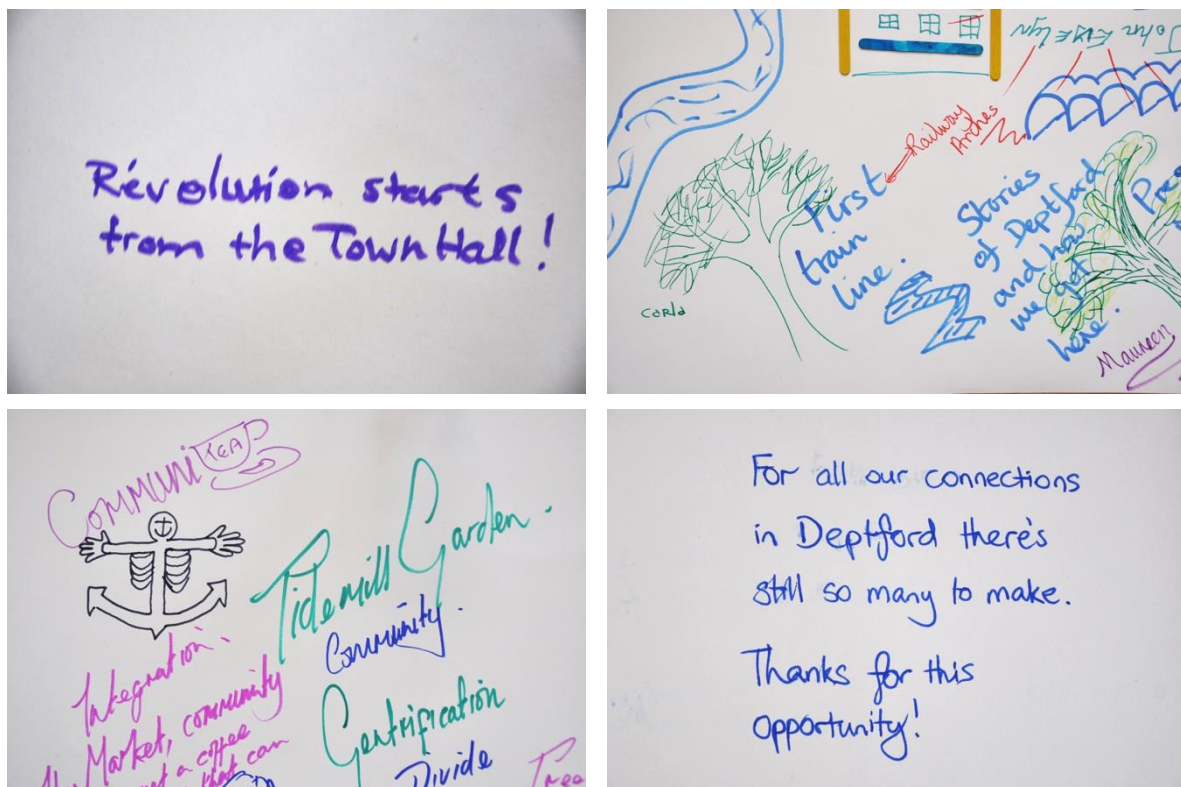 Revolution starts
from the Town Hall!
John Evelyn
Railway
Arches
First
train
line.
Stories
of Deptford
and how
we got
here.
Carla
Maureen
Communi TEA
Tidemill Garden.
Community.
Integration.
Market, community
a coffee
that can
Gentrification
Divide
Tree
For all our connections
in Deptford there's
still so many to make.
Thanks for this
opportunity!